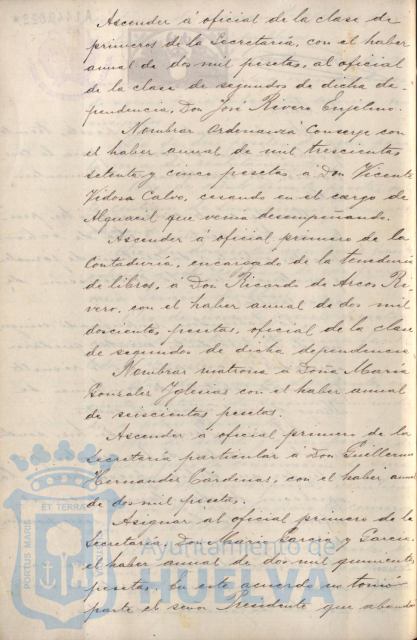 Ascender á oficial de la clase de
primeros de la Secretaría, con el haber
anual de dos mil pesetas, al oficial
de la clase de segundos de dicha de-
pendencia, Don José Rivero
Nombrar Ordenanza Conserge con
el haber anual de mil trescientas
setenta y cinco pesetas a Don Vicente
Vidosa Calvo, cesando en el cargo de
Alguacil que venia desempeñando.
Ascender á oficial primero de la
Contaduría, encargado de la teneduria
de libros, a Don Ricardo de Arcos Ri-
vero, con el haber anual de dos mil
doscientas pesetas, oficial de la clase
de segundos de dicha dependencia
Nombrar matrona a Doña María
Gonzalez Iglesias con el haber anual
de seiscientas pesetas.
Ascender á oficial primero de la
Secretaría particular a Don Guillermo
Hernandez Cárdenas, con el haber anual
de dos mil pesetas.
Asignar al oficial primero de la
Secretaria, Don Mario Garcia y Garcia
el haber anual de dos mil quinientas
pesetas. En este acuerdo no tomó
parte el señor Presidente que aband
PORTUS MARIS
ET TERRAE
Ayuntamiento de
HUELVA